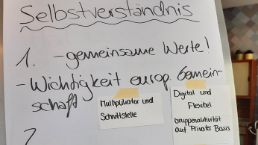 Selbstverständnis
1. - gemeinsame Werte!
- Wichtigkeit europ. Gemein-
schaft
Multiplikator und
Schnittstelle
Digital und
Flexibel
Gruppenaktivität
auf Privater Basis
2